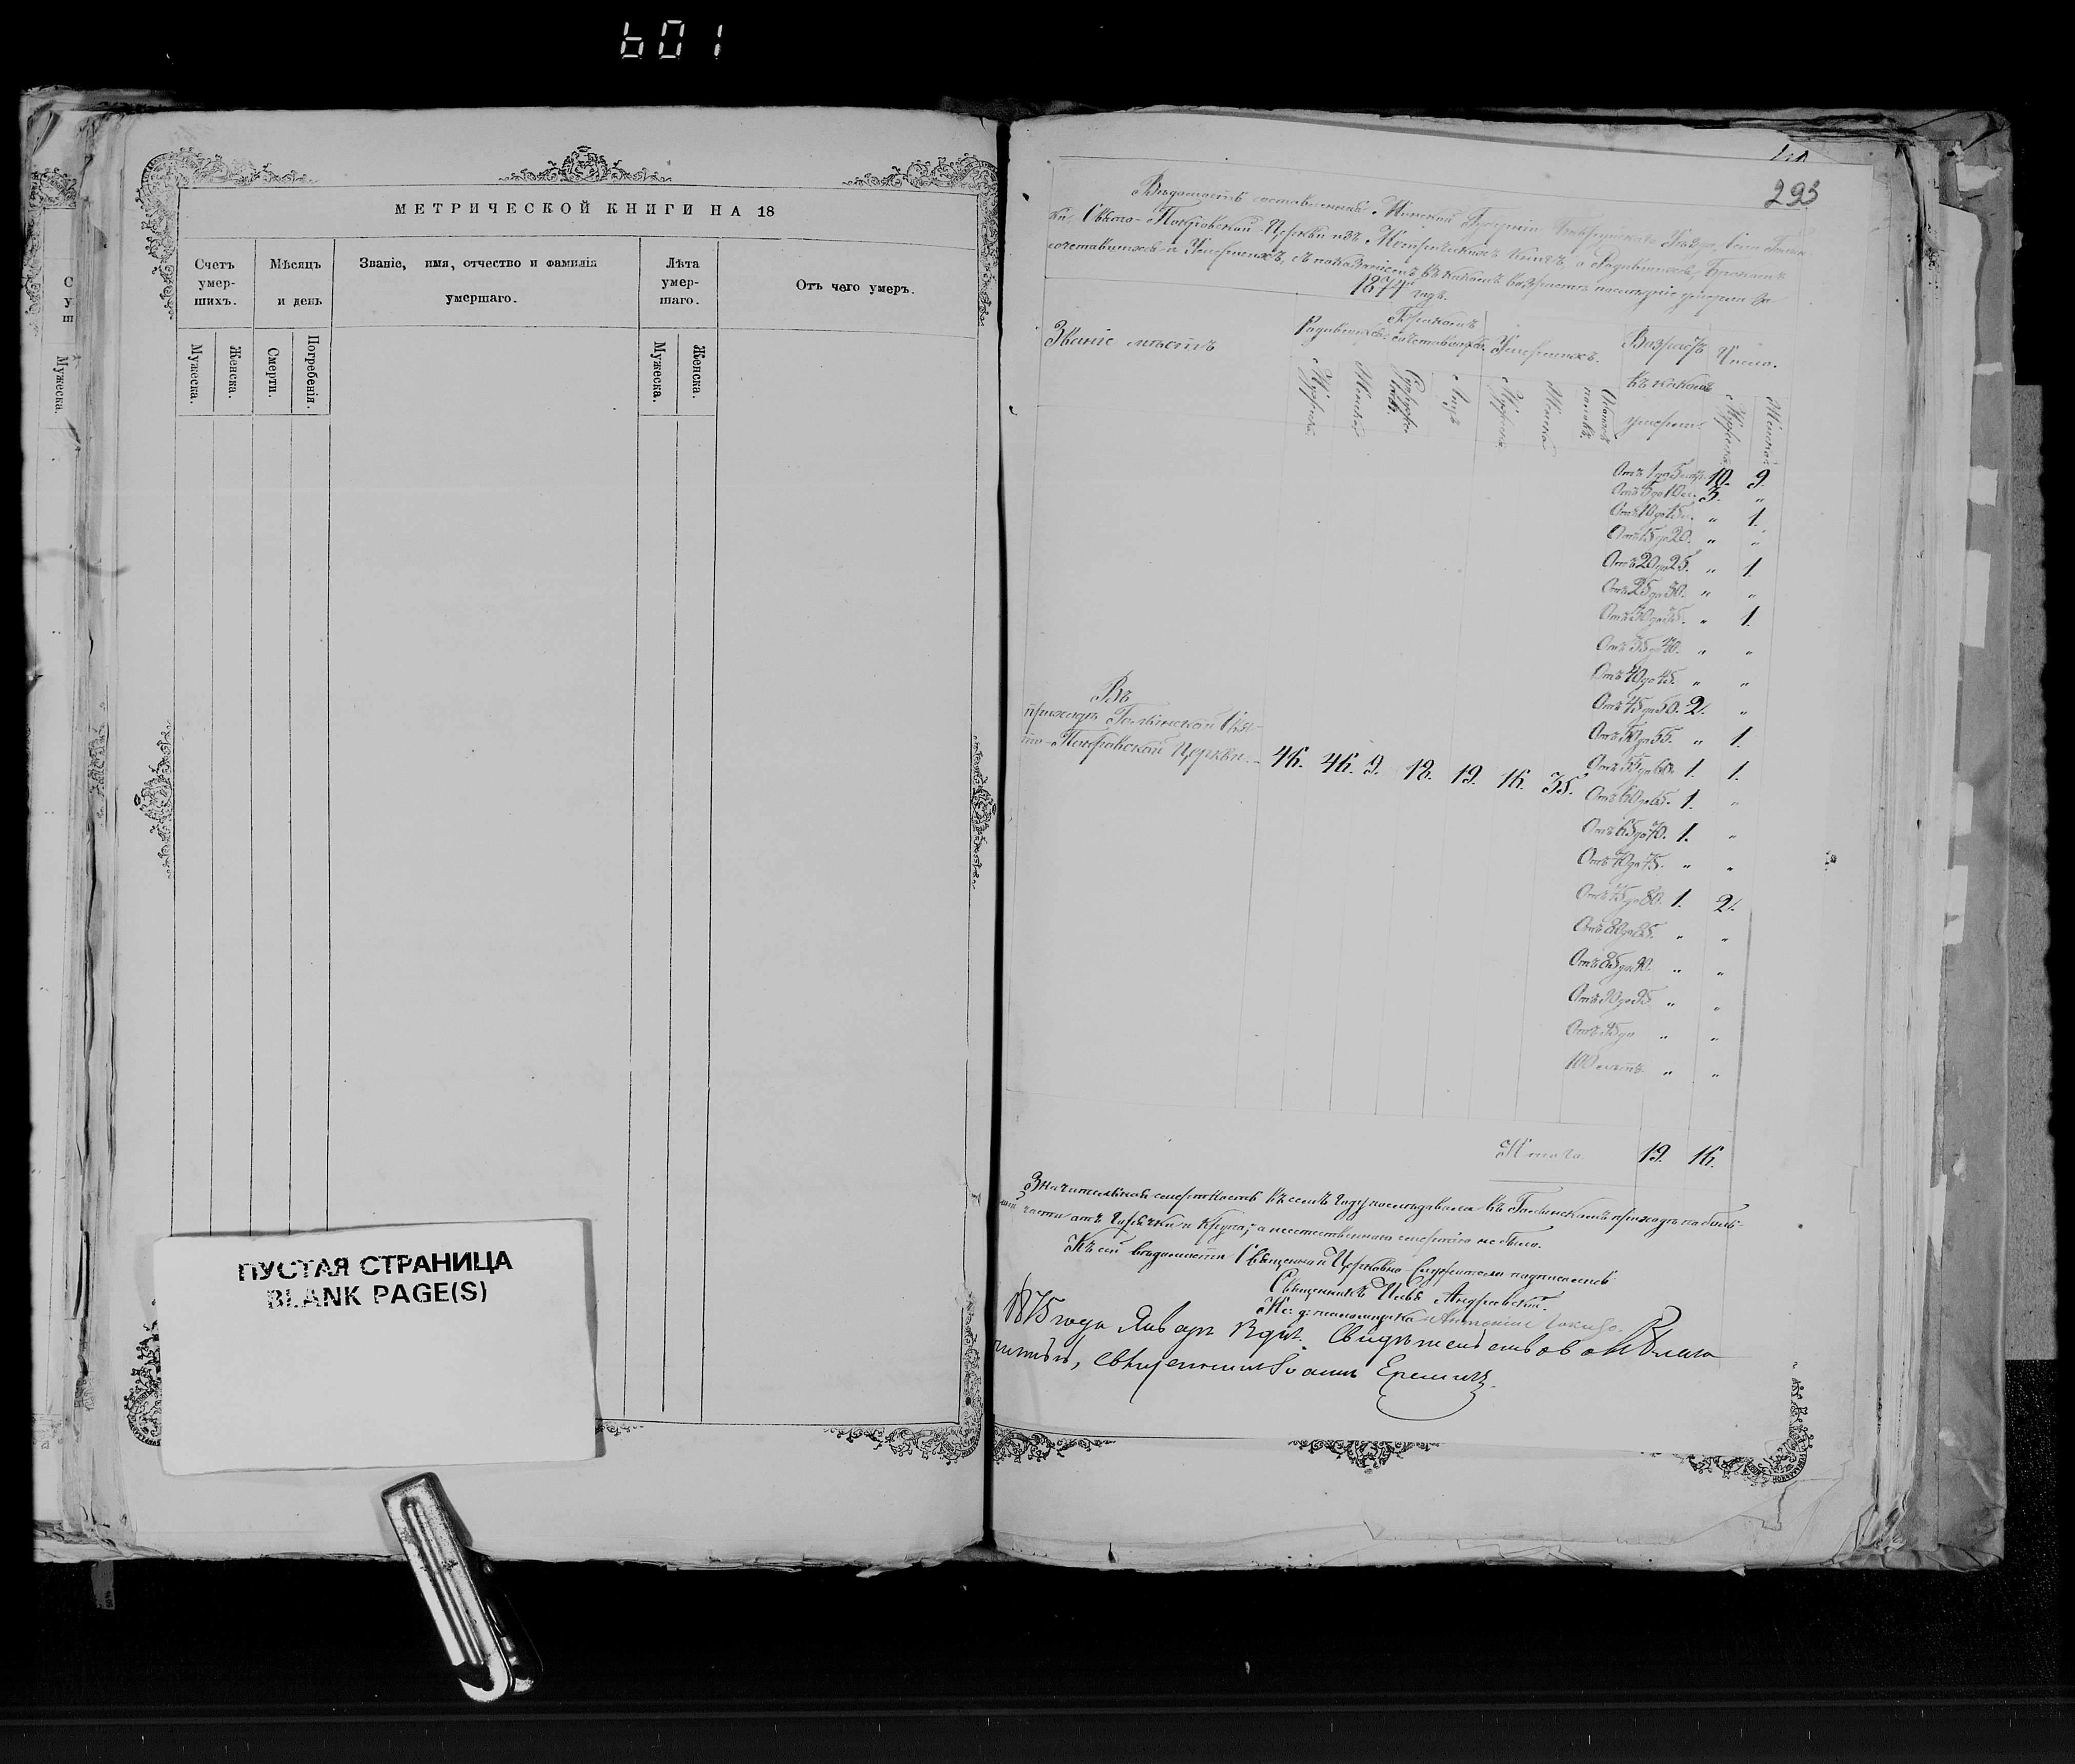 601
МЕТРИЧЕСКОЙ КНИГИ НА 18
Счетъ умер-шихъ.
Мѣсяцъ и день
Званіе, имя, отчество и фамилія умершаго.
Лѣта умер-шаго.
Отъ чего умеръ.
Мужеска.
Женска.
Смерти.
Погребенія.
Мужеска.
Женска.
Мужеска.
ПУСТАЯ СТРАНИЦА
BLANK PAGE(S)
293
Вѣдомость составленная Минской Губерніи Уѣзда, Села
Свято-Покровской Церкви изъ Метрическихъ Книгъ, о Родившихся, Бракомъ
сочетавшихся и Умершихъ, съ показаніемъ въ какомъ возрастѣ послѣдніе умерли за
1874 годъ.
Званіе мѣстъ
Родившихся
Бракомъ сочетавшихся
Умершихъ.
Возрастъ въ какомъ умерли.
Число.
Мужеска
Женска
Лицъ
Мужеска
Женска
Обоего пола
Мужеска
Женска
Отъ 1 до 5 10. 9.
Отъ 5 до 10 3. „
Отъ 10 до 15. „ 1.
Отъ 15 до 20. „ „
Отъ 20 до 25. „ 1.
Отъ 25 до 30. „ „
Отъ 30 до 35. „ 1.
Отъ 35 до 40. „ „
Отъ 40 до 45. „ „
Отъ 45 до 50. 2. „
Отъ 50 до 55. „ 1.
Отъ 55 до 60. 1. 1.
Отъ 60 до 65. 1. „
Отъ 65 до 70. 1. „
Отъ 70 до 75. „ „
Отъ 75 до 80. 1. 2.
Отъ 80 до 85. „ „
Отъ 85 до 90. „ „
Отъ 90 до 95. „ „
Отъ 95 до „ „
100 лѣтъ. „ „
Въ
приходѣ Свя-
то-Покровской Церкви. 46. 46. 9. 18. 19. 16. 35.
Итого. 19. 16.
Значительная смертность въ семъ году послѣдовала въ приходѣ по боль-
части отъ горячки и крупа; а неестественною смертію не было.
Къ сей вѣдомости Священно и Церковно Служители подписались
Священникъ Илья Андреевскій.
И: д: псаломщика Антоній
1875 года Января дня. Свидѣтельствовалъ
священникъ Іоаннъ